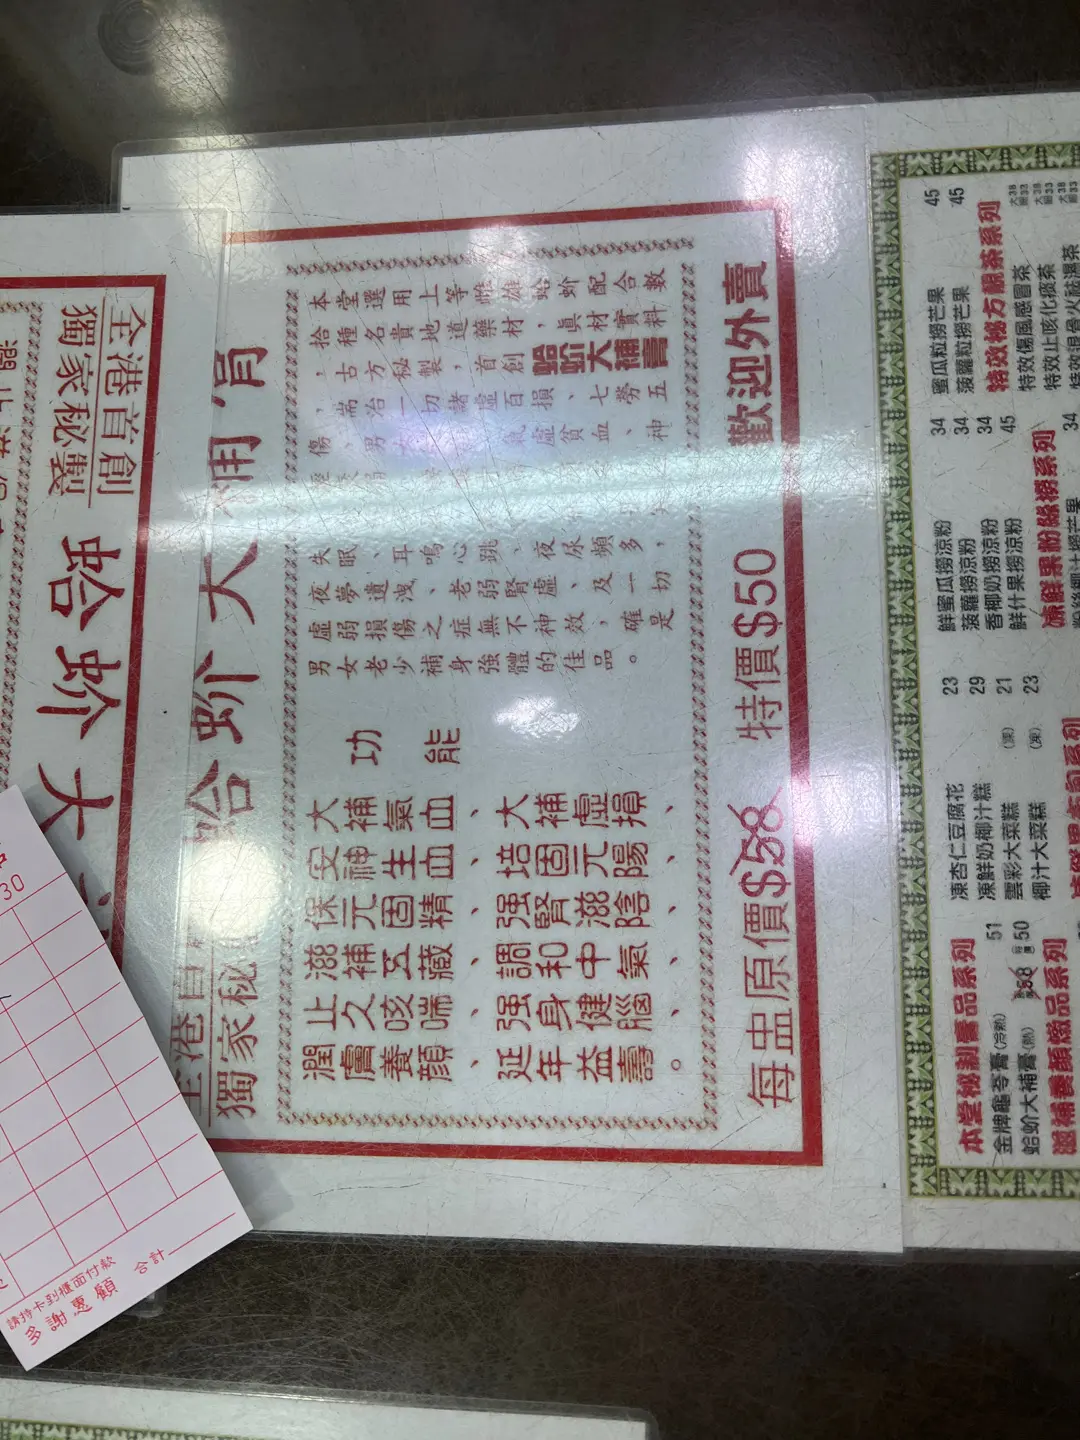 全港首創
獨家秘製
蛤蚧大
獨家秘
蛤蚧大補膏
本堂選用上等雌雄蛤蚧配合數
拾種名貴地道藥材，真材實料
，古方秘製，首創蛤蚧大補膏
，耑治一切諸虛百損、七勞五
傷、男女 氣虛貧血、神
失眠、耳鳴心跳、夜尿頻多，
夜夢遺洩、老弱腎虛、及一切
虛弱損傷之症無不神效，確是
男女老少補身強體的佳品。
功能
大補氣血、大補虛損、
安神生血、培固元陽、
保元固精、强腎滋陰、
滋補五藏、調和中氣、
止久咳喘、强身健腦、
潤膚養顏、延年益壽。
每盅原價$58 特價$50 歡迎外賣
本堂秘制膏品系列
金牌龜苓膏(冷熱) 51
蛤蚧大補膏(熱) $58 特價50
滋補養顏燉品系列
凍杏仁豆腐花 23
凍鮮奶椰汁糕 29
雲彩大菜糕 (凍) 21
椰汁大菜糕 (凍) 23
鮮蜜瓜撈涼粉 34
菠蘿撈涼粉 34
香椰奶撈涼粉 34
鮮什果撈涼粉 45
凍鮮果粉絲撈系列
34
蜜瓜粒撈芒果 45
菠蘿粒撈芒果 45
特效秘方靚茶系列
特效傷風感冒茶 大38 細33
特效止咳化痰茶 大38 細33
30
合計
請持卡到櫃面付款
多謝惠顧